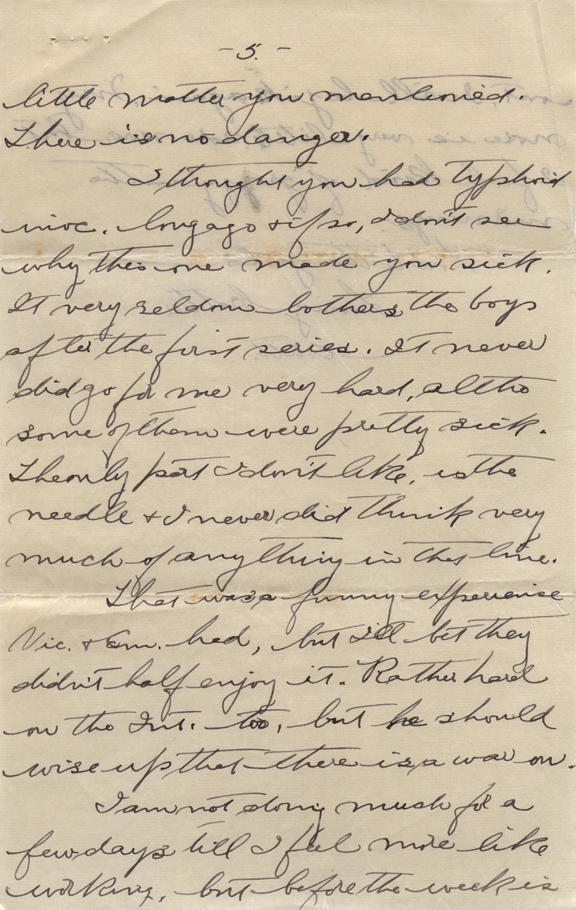 -5.-
little matter you mentioned.
There is no danger.
I thought you had typhoid
inoc. long ago & if so, I don't see
why this one made you sick.
It very seldom bothers the boys
after the first series. It never
did go for me very hard, altho
some of them were pretty sick.
The only part I don't like, is the
needle & I never did think very
much of anything in that line.
That was a funny experience
Vic. & Em. had, but I'll bet they
didn't half enjoy it. Rather hard
on the Int. too, but he should
wise up that there is a war on.
I am not doing much for a
few days till I feel more like
working, but before the week is